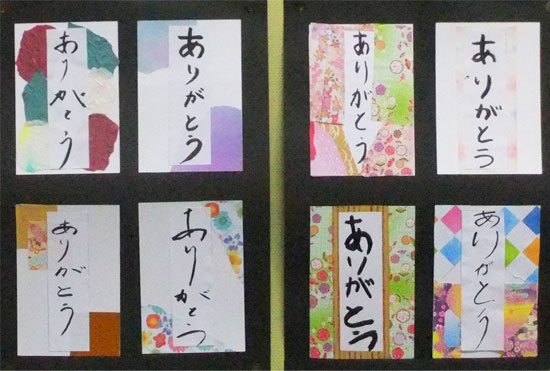 ありがとう
ありがとう
ありがとう
ありがとう
ありがとう
ありがとう
ありがとう
ありがとう